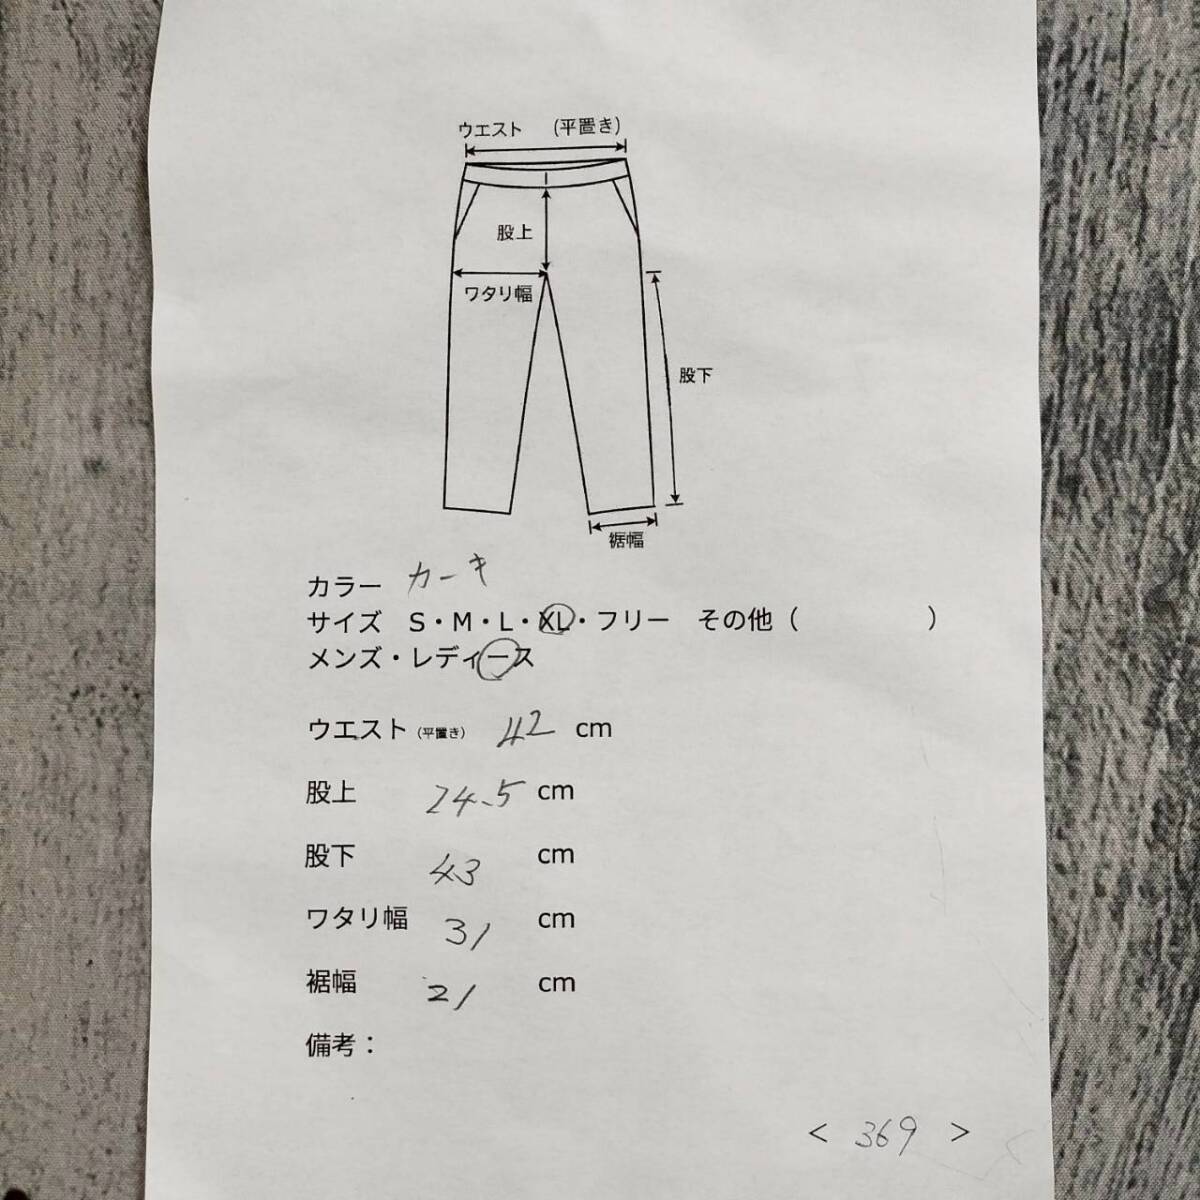 ウエスト (平置き)
股上
ワタリ幅
股下
裾幅
カラー カーキ
サイズ S・M・L・XL・フリー その他( )
メンズ・レディース
ウエスト(平置き) 42 cm
股上 24.5 cm
股下 43 cm
ワタリ幅 31 cm
裾幅 21 cm
備考：
< 369 >